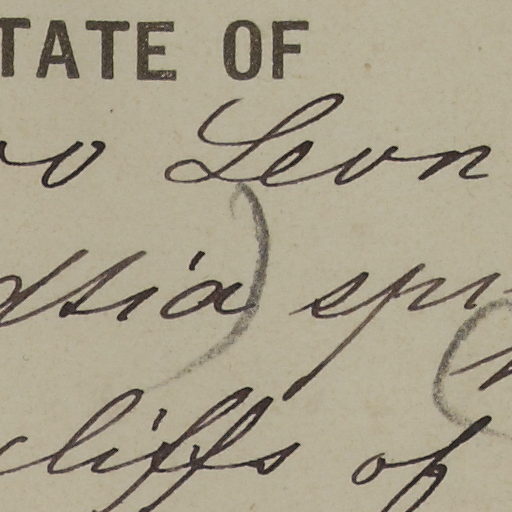 TATE OF
o Leon
dtia) spi
cliffs of